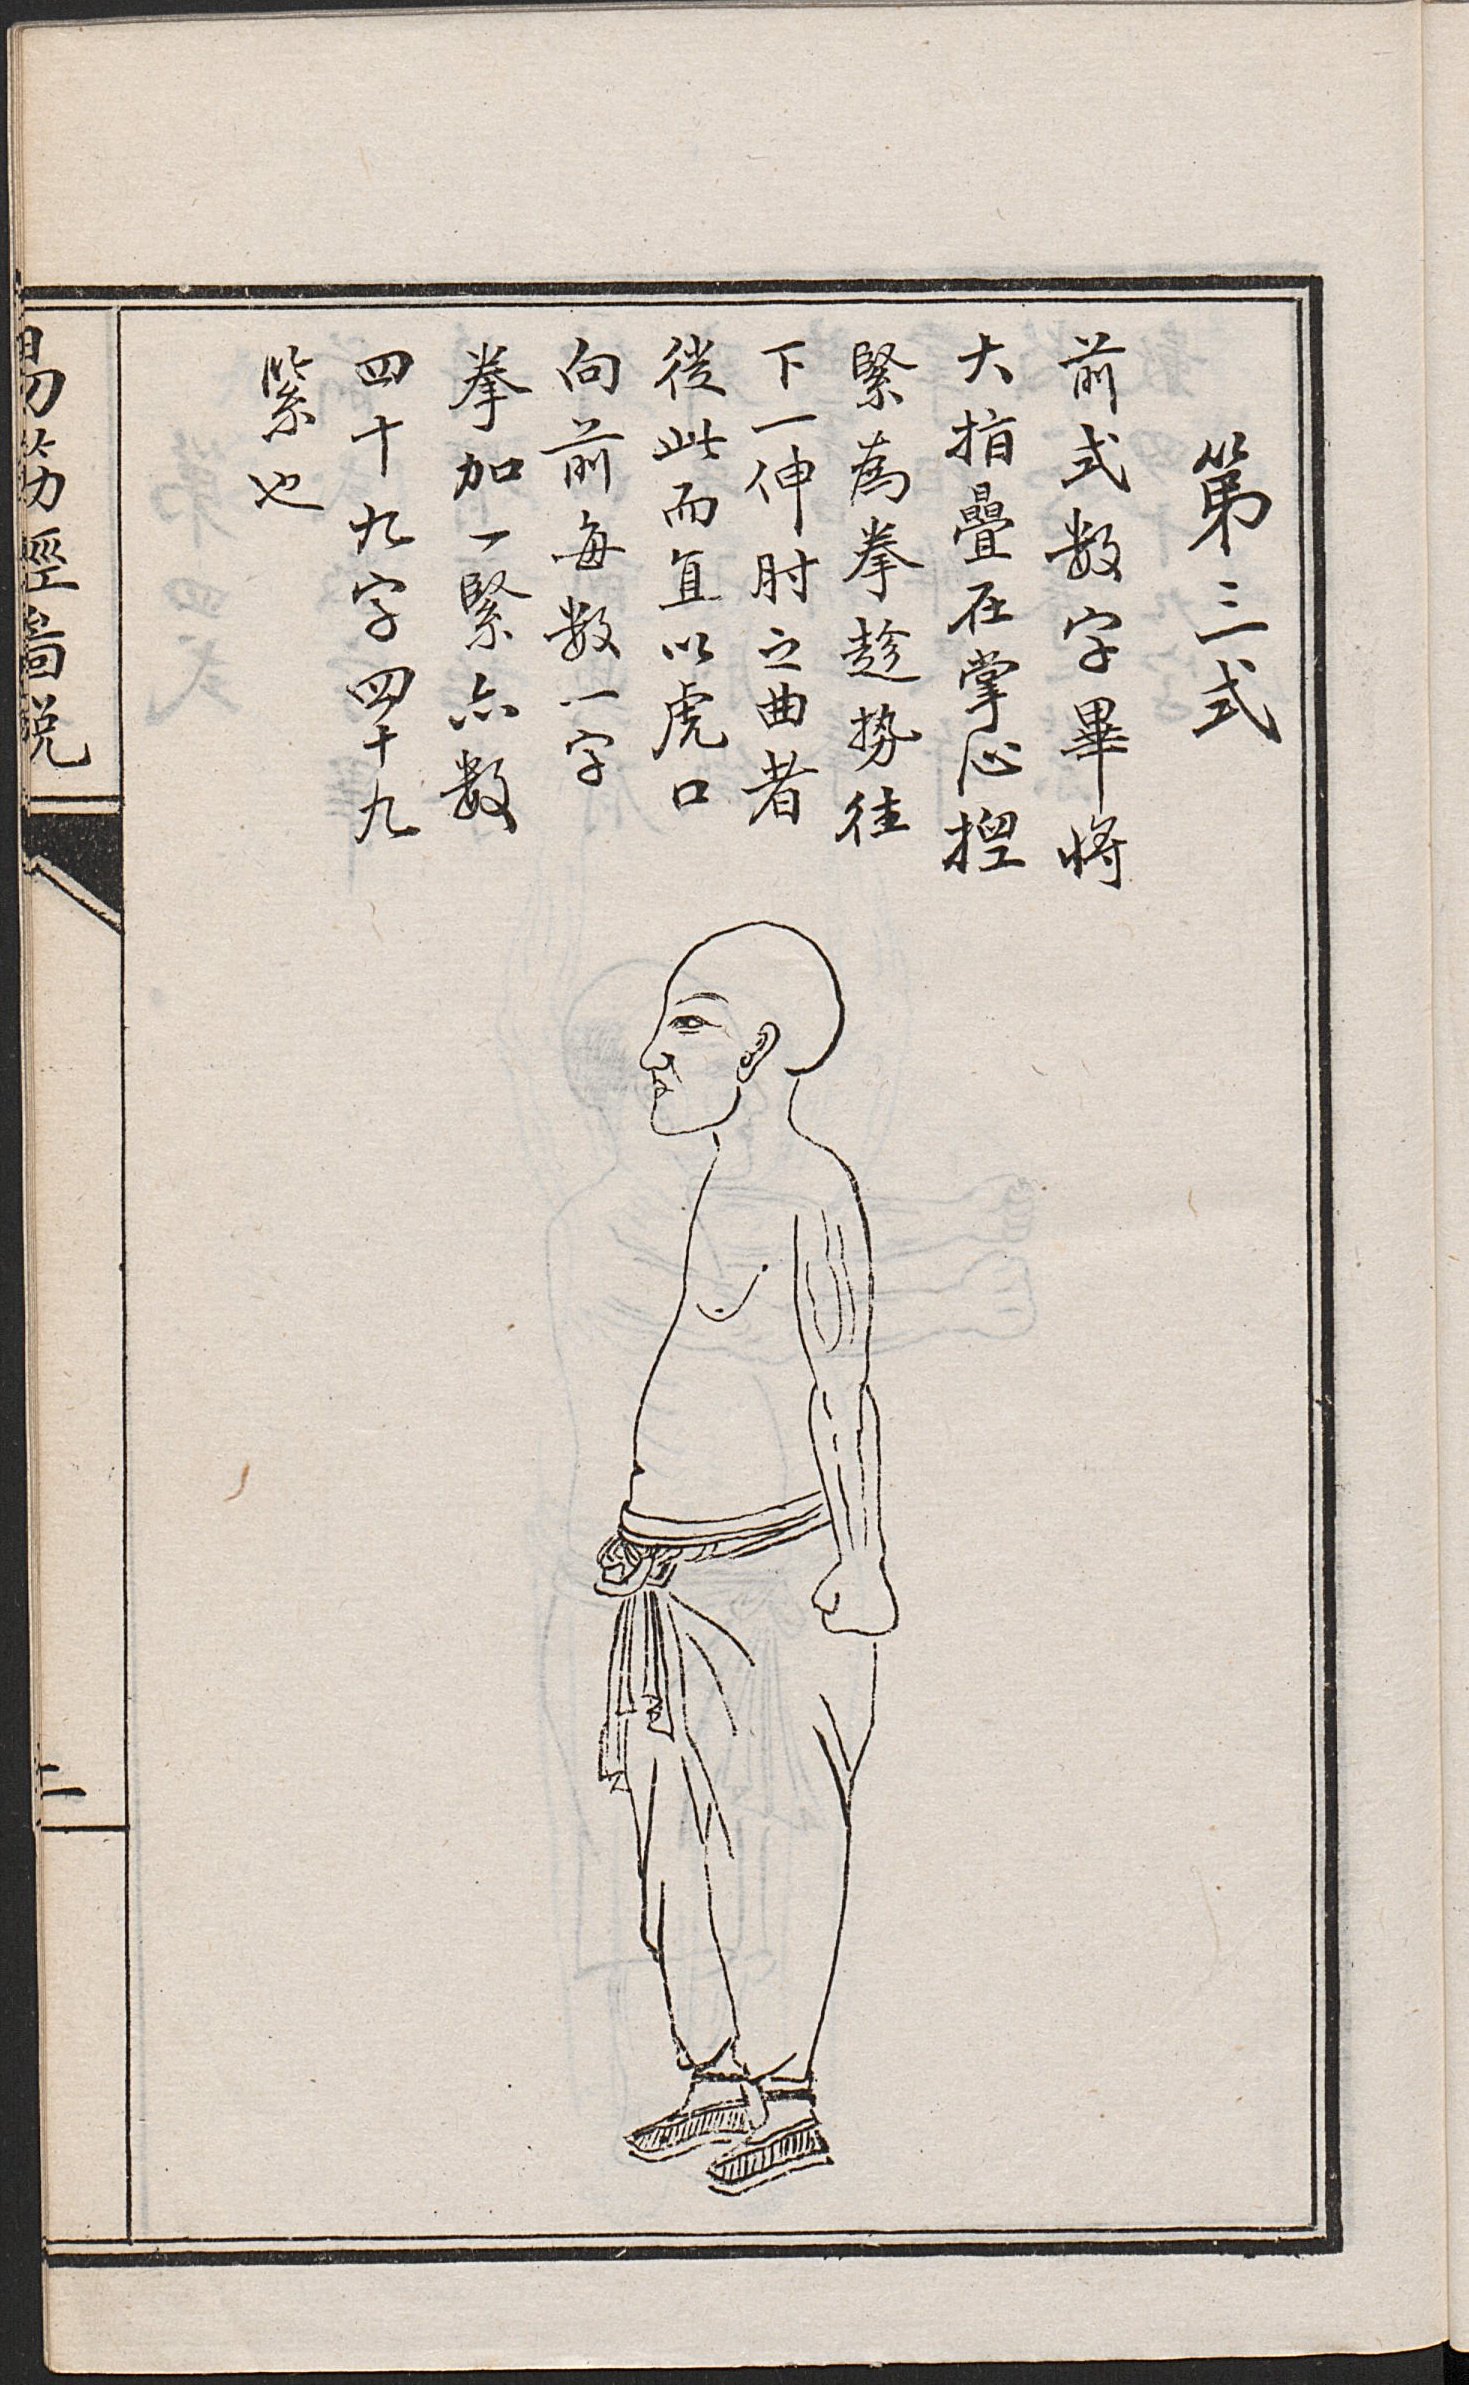 第三式
前式数字畢將
大指疊在掌心揑
緊為拳趁势往
下一伸肘之曲者
從此而直以虎口
向前每数一字
拳加一緊亦数
四十九字四十九
緊也
易筋經圖說